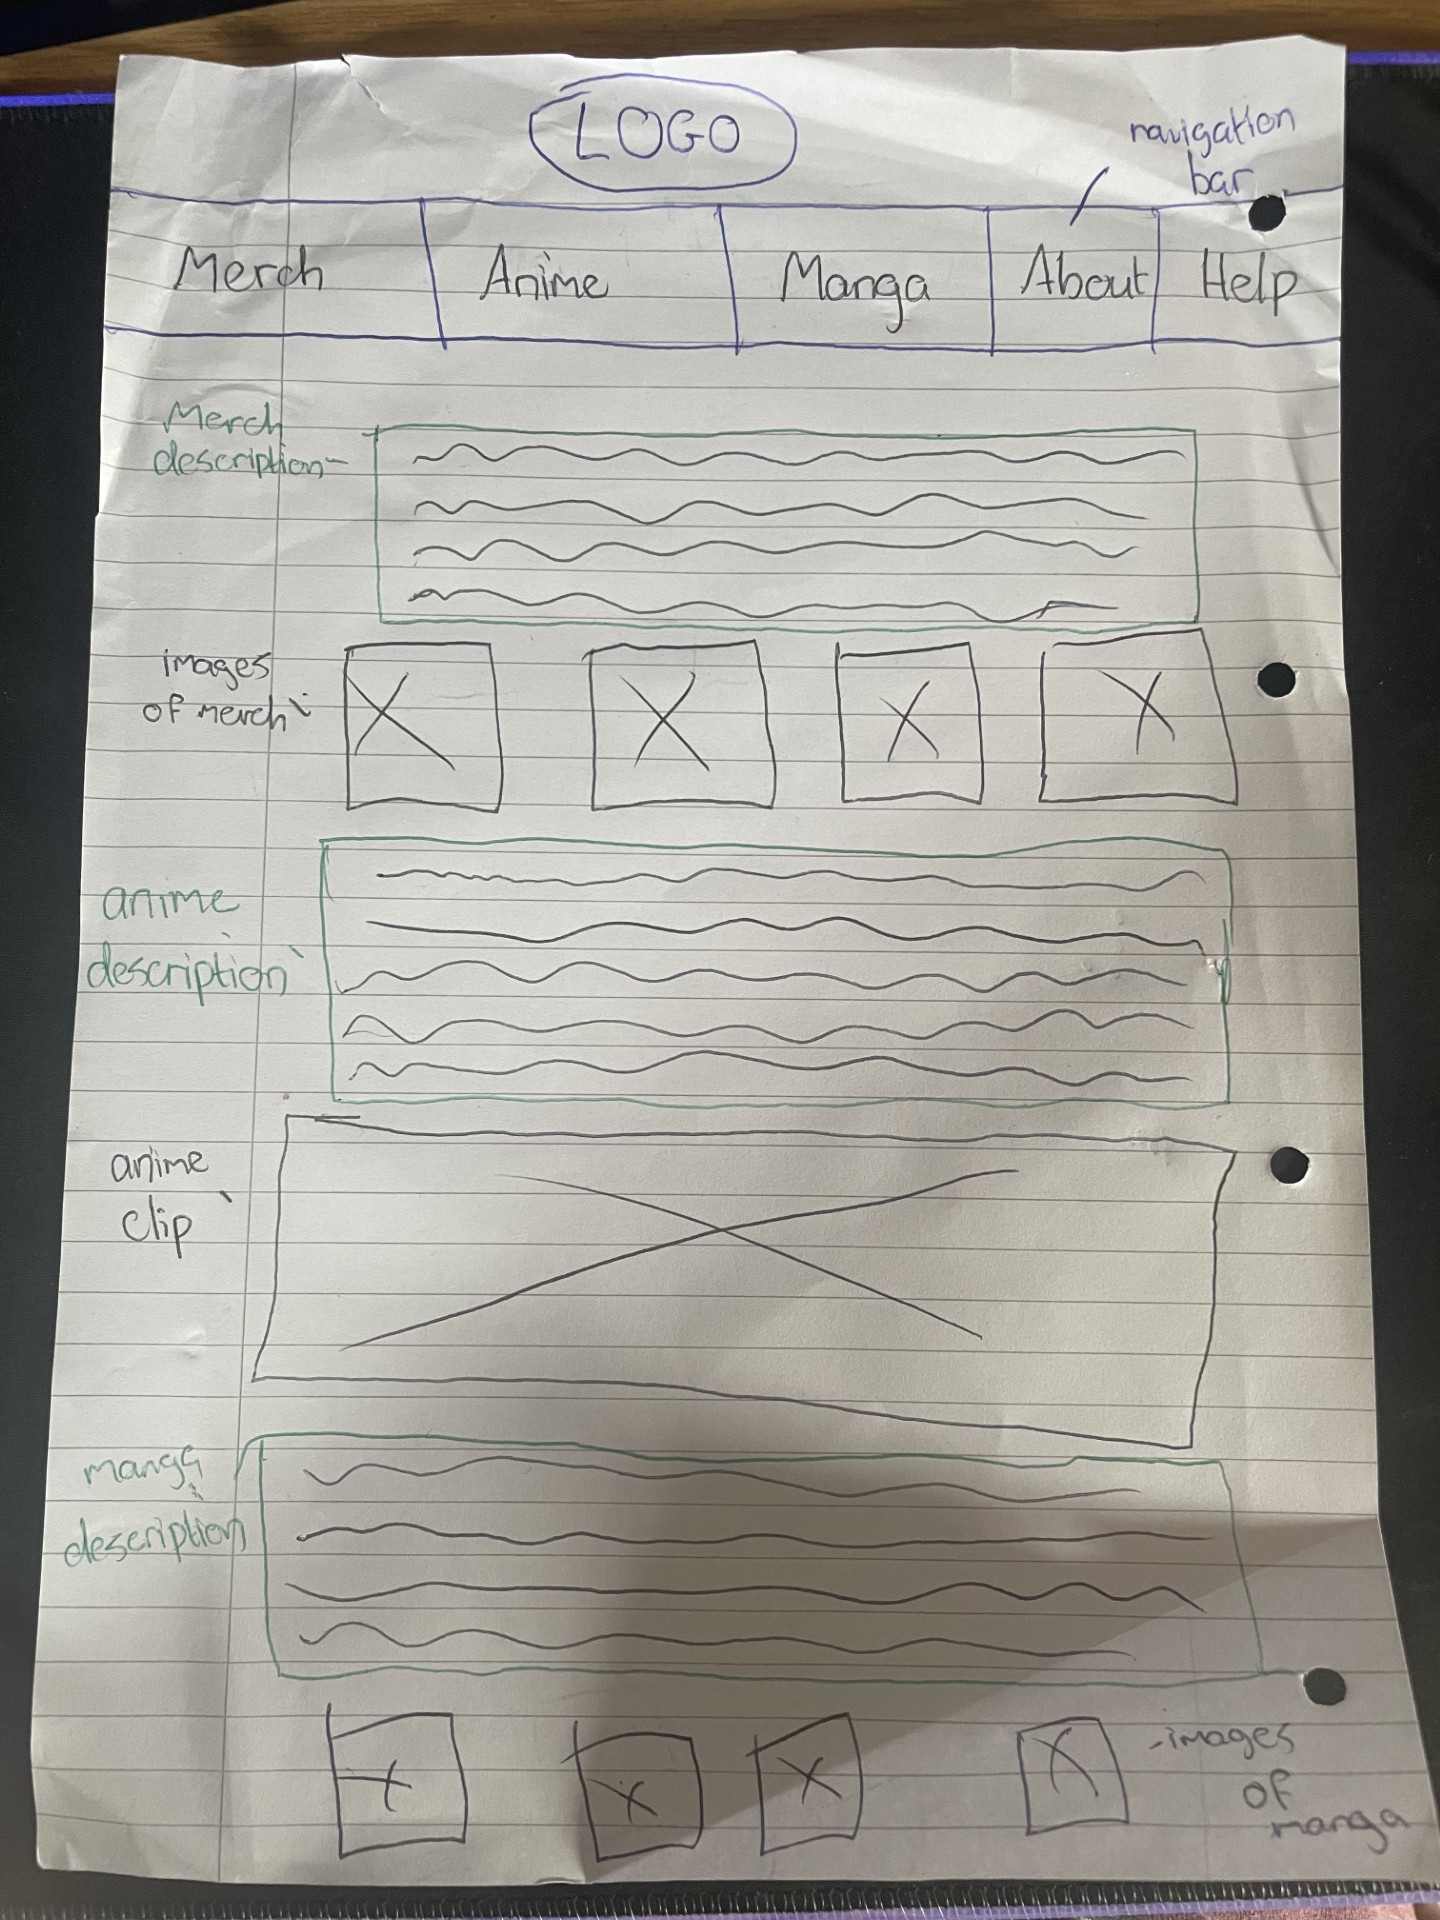 LOGO
navigation
bar
Merch
Anime
Manga
About
Help
Merch
description
images
of merch
anime
description
anime
clip
manga
description
-images
of
manga